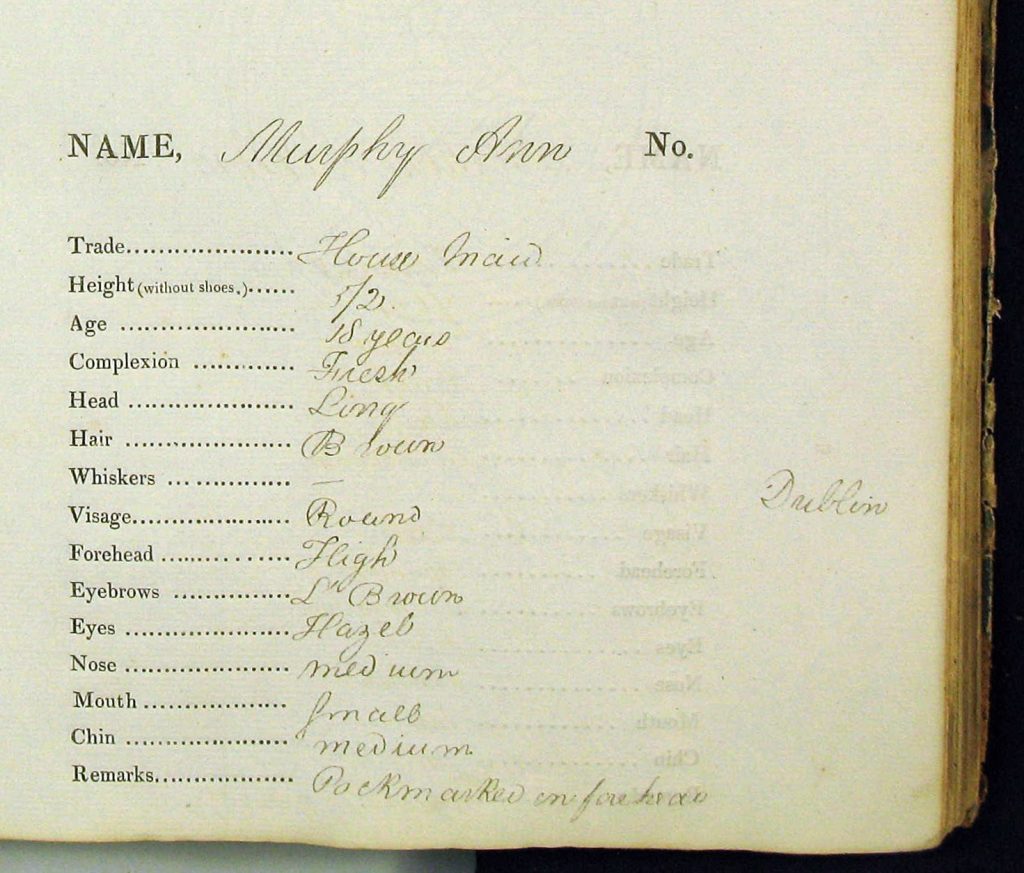 NAME, Murphy Ann No.
Trade..................... House Maid
Height (without shoes.)...... 5/2
Age ...................... 18 years
Complexion ............. Fresh
Head ..................... Long
Hair ..................... Brown
Whiskers ... ............ —
Dublin
Visage.................... Round
Forehead ................ High
Eyebrows ............... Lt Brown
Eyes ..................... Hazel
Nose ..................... medium
Mouth .................. Small
Chin ..................... medium
Remarks................. Pockmarked on forehead